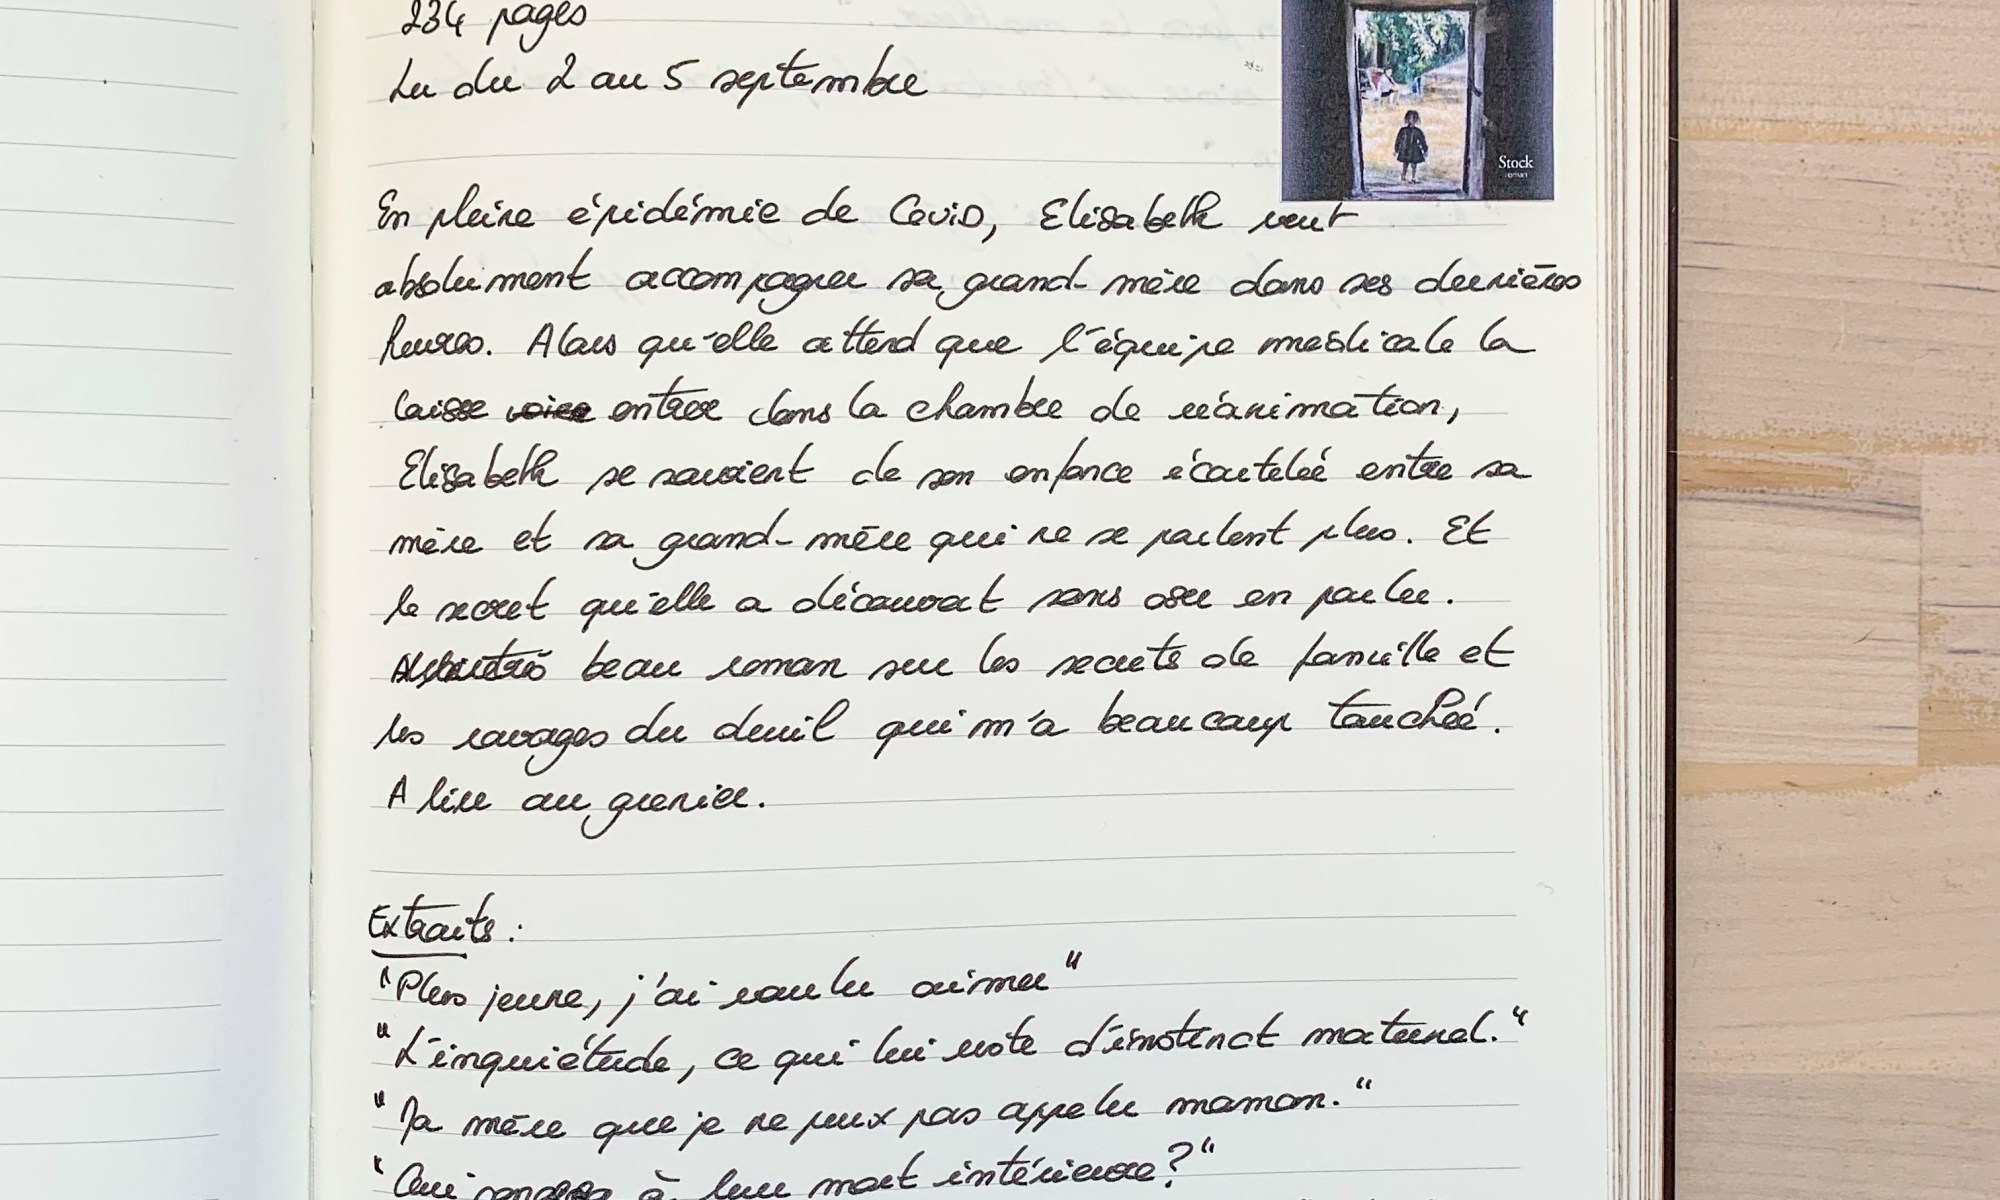 234 pages
Lu du 2 au 5 septembre
Stock
roman
En pleine épidémie de Covid, Elisabeth veut
absolument accompagner sa grand-mère dans ses dernières
heures. Alors qu'elle attend que l'équipe médicale la
laisse entrer dans la chambre de réanimation,
Elisabeth se souvient de son enfance écartelée entre sa
mère et sa grand-mère qui ne se parlent plus. Et
le secret qu'elle a découvert sans oser en parler.
beau roman sur les secrets de famille et
les ravages du deuil qui m'a beaucoup touchée.
A lire au grenier.
Extraits :
"Plus jeune, j'ai voulu aimer"
"L'inquiétude, ce qui lui reste d'instinct maternel."
"Ma mère que je ne peux pas appeler maman."
"Qui à leur mort intérieure ?"